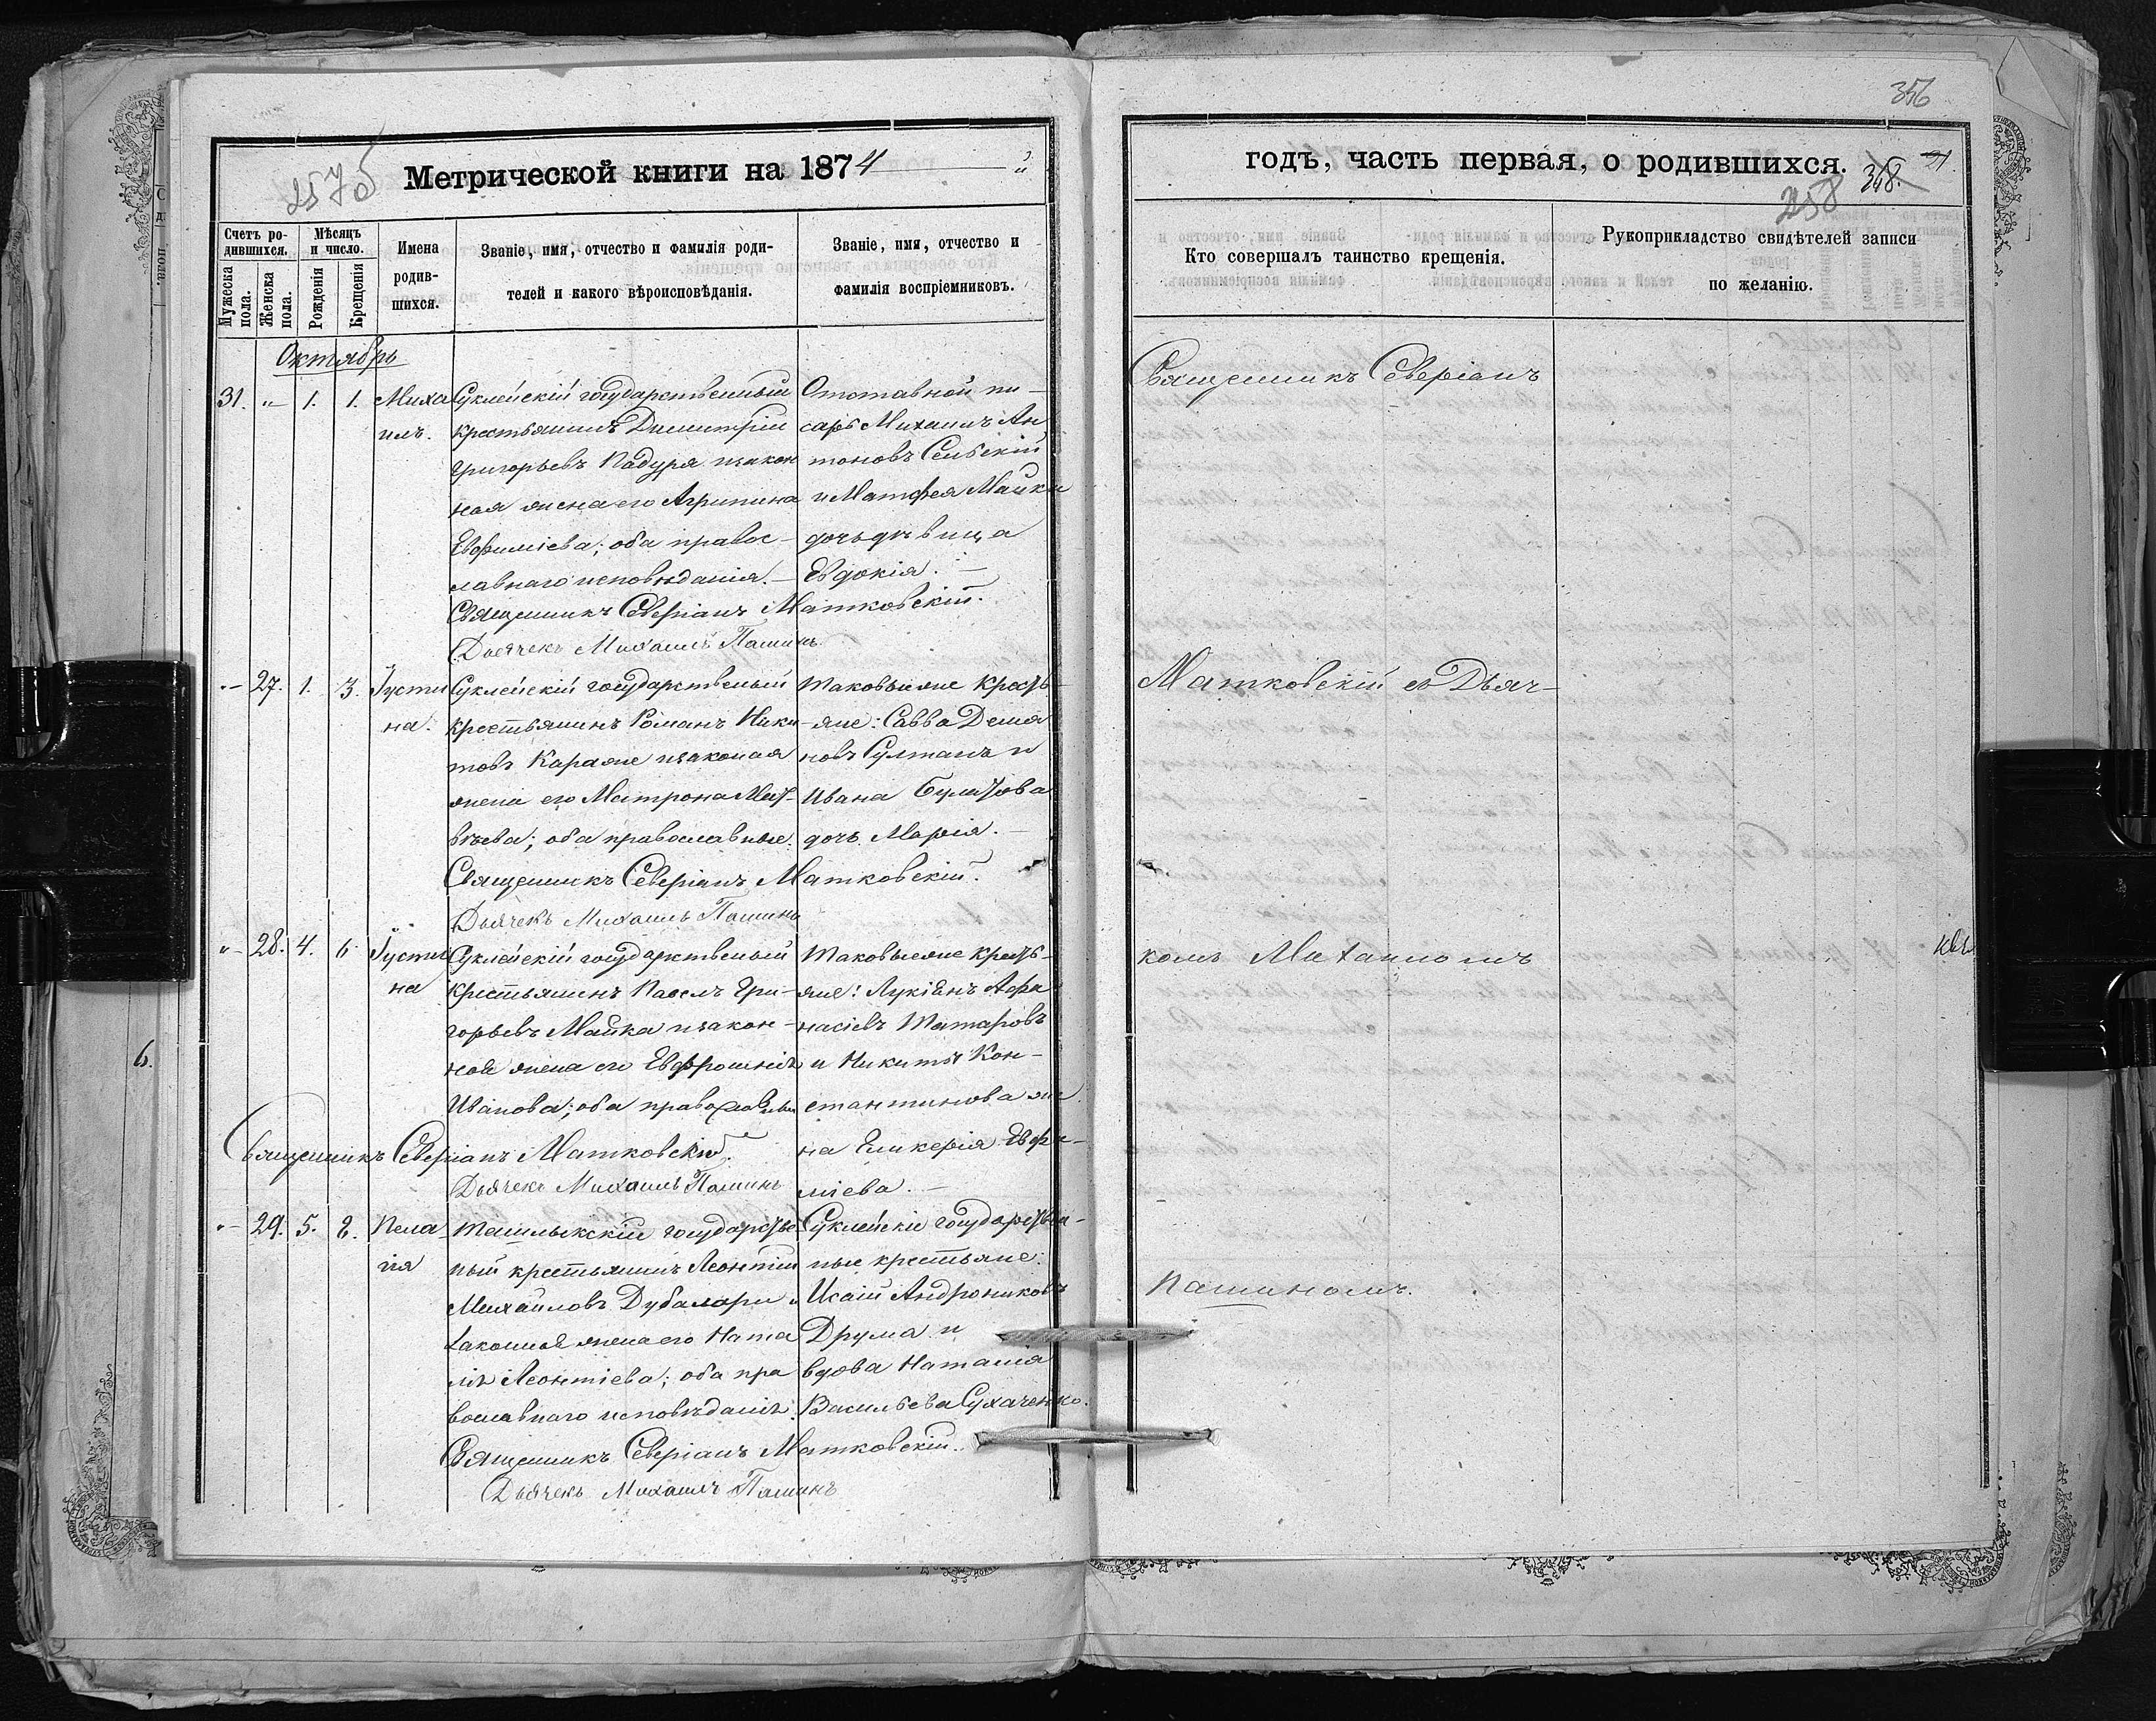 257 б
Метрической книги на 1874
Счетъ ро-
дившихся.
Мужеска
пола.
Женска
пола.
Мѣсяцъ
и число.
Рожденія
Крещенія
Имена
родив-
шихся.
Званіе, имя, отчество и фамилія роди-
телей и какого вѣроисповѣданія.
Званіе, имя, отчество и
фамилія воспріемниковъ.
Октябрь
31. „ 1. 1. Миха
илъ.
Суклейскій государственный
крестьянинъ Димитрій
Григорьевъ Падуря изакон
ная жена его Агрипина
Евфиміева; оба правос-
лавнаго исповѣданія.
Отставной пи-
сарь Михаилъ Ан
тоновъ Сельскій
и Матфея Майки
дочь дѣвица
Евдокія.
Священникъ Северіанъ Матковскій.
Дьячекъ Михаилъ Пашинъ
„ 27. 1. 3. Іусти
на.
Суклейскій государственый
крестьянинъ Романъ Ники
товъ Караже изаконая
жена его Матрона Мат-
вѣева; оба православные.
Таковыеже кресть-
яне: Савва Демя
новъ Султанъ и
Ивана
дочь Марія.
Священникъ Северіанъ Матковскій.
Дьячекъ Михаилъ Пашинъ
„ 28. 4. 6 Іусти
на
Суклейскій государственый
крестьянинъ Павелъ Гри-
горьевъ Майка изакон-
ная жена его Евфросинія
Иванова; оба православны
Таковыеже кресть-
яне: Лукіанъ Афа
насіевъ Татаровъ
и Никиты Кон-
стантинова же
на Гликерія Евфи-
міева.
Священникъ Северіанъ Матковскій.
Дьячекъ Михаилъ Пашинъ
„ 29. 5. 8. Пела
гія
Ташлыкскій государстве
ный крестьянинъ Леонтій
Михайловъ Дубалари и
законная жена его Ната
лія Леонтіева; оба пра
вославнаго исповѣданія.
Суклейскіе государствен-
ные крестьяне:
Исаій Андрониковъ
Друма и
вдова Наталія
Васильева Сухаченко.
Священникъ Северіанъ Матковскій.
Дьячекъ Михаилъ Пашинъ
6.
356
годъ, часть первая, о родившихся.
258 348. 21.
Кто совершалъ таинство крещенія.
Рукоприкладство свидѣтелей записи
по желанію.
Священникъ Северіанъ
Матковскій съ Дьяч-
комъ Михаиломъ
Пашиномъ.